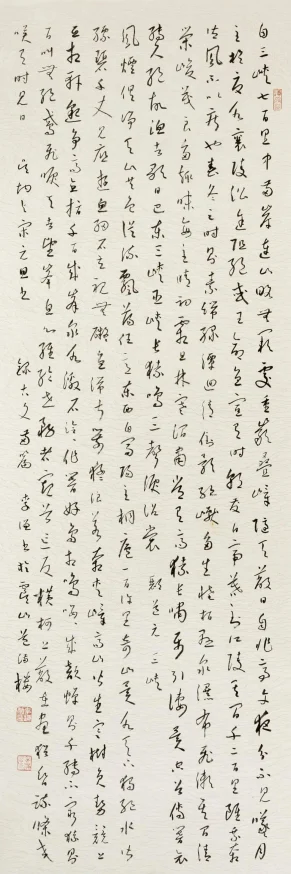 自三峽七百里中兩岸連山略無闕處重巖疊嶂隱天蔽日自非亭午夜分不見曦月
至於夏水襄陵沿溯阻絕或王命急宣有時朝發白帝暮到江陵其間千二百里雖乘奔
御風不以疾也春冬之時則素湍綠潭回清倒影絕巘多生怪柏懸泉瀑布飛漱其間清
榮峻茂良多趣味每至晴初霜旦林寒澗肅常有高猿長嘯屬引淒異空谷傳響哀
轉久絕故漁者歌曰巴東三峽巫峽長猿鳴三聲淚沾裳 酈道元 三峽
風煙俱淨天山共色從流飄蕩任意東西自富陽至桐廬一百許里奇山異水天下獨絕水皆
縹碧千丈見底游魚細石直視無礙急湍甚箭猛浪若奔夾嶂高山皆生寒樹負勢競上
互相軒邈爭高直指千百成峰泉水激石泠泠作響好鳥相鳴嚶嚶成韻蟬則千轉不窮猿則
百叫無絕鳶飛唳天者望峰息心經綸世務者窺谷忘反橫柯上蔽在晝猶昏疏條交
映有時見日 吳均與宋元思書 錄古文兩篇 李 書於霞山 海樓